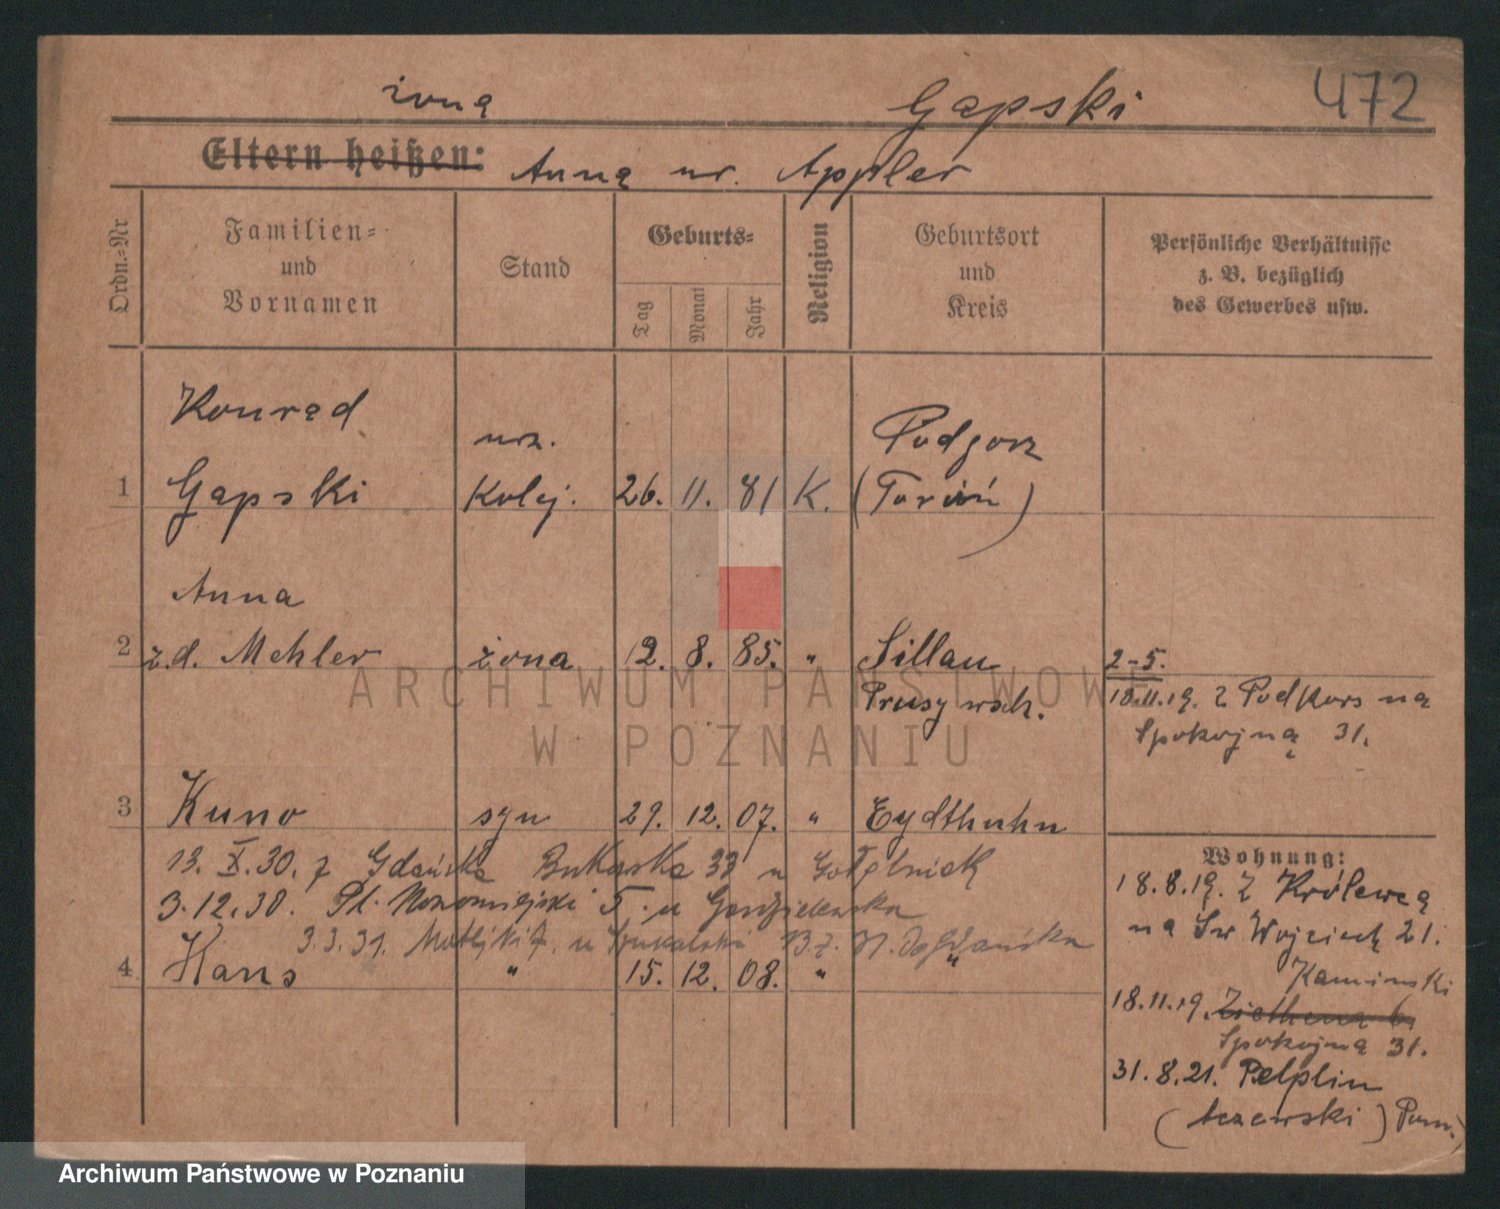 żona Gapski 472
Eltern heißen: Anna ur. Appler
Ordn.-Nr
Familien-
und
Vornamen
Stand
Geburts-
Tag
Monat
Jahr
Religion
Geburtsort
und
Kreis
Persönliche Verhältnisse
z. B. bezüglich
des Gewerbes usw.
Konrad urz. Podgorz
1 Gapski Kolej. 26. 11. 81 K. (Toruń)
Anna
2 z.d. Mehler żona 12. 8. 85. " Sillau 2-5.
Prusy wsch. 10.11.19. z Podkors na
Spokojną 31.
3 Kuno syn 29. 12. 07. " Eydtkuhn
Wohnung:
13. X. 30. z Gdańska Bukarska 33 u
3.12.30. Pl. Nowomiejski 5. u
3.3.31. Matejki 7. u
4 Hans " 15. 12. 08. "
18.8.19. z Królewca
na Św Wojciech 21.
Kaminski
18.11.19. Ziethena 6.
Spokojna 31.
31.8.21. Pelplin
(tczewski) Pom.
ARCHIWUM PAŃSTWOWE
W POZNANIU
Archiwum Państwowe w Poznaniu